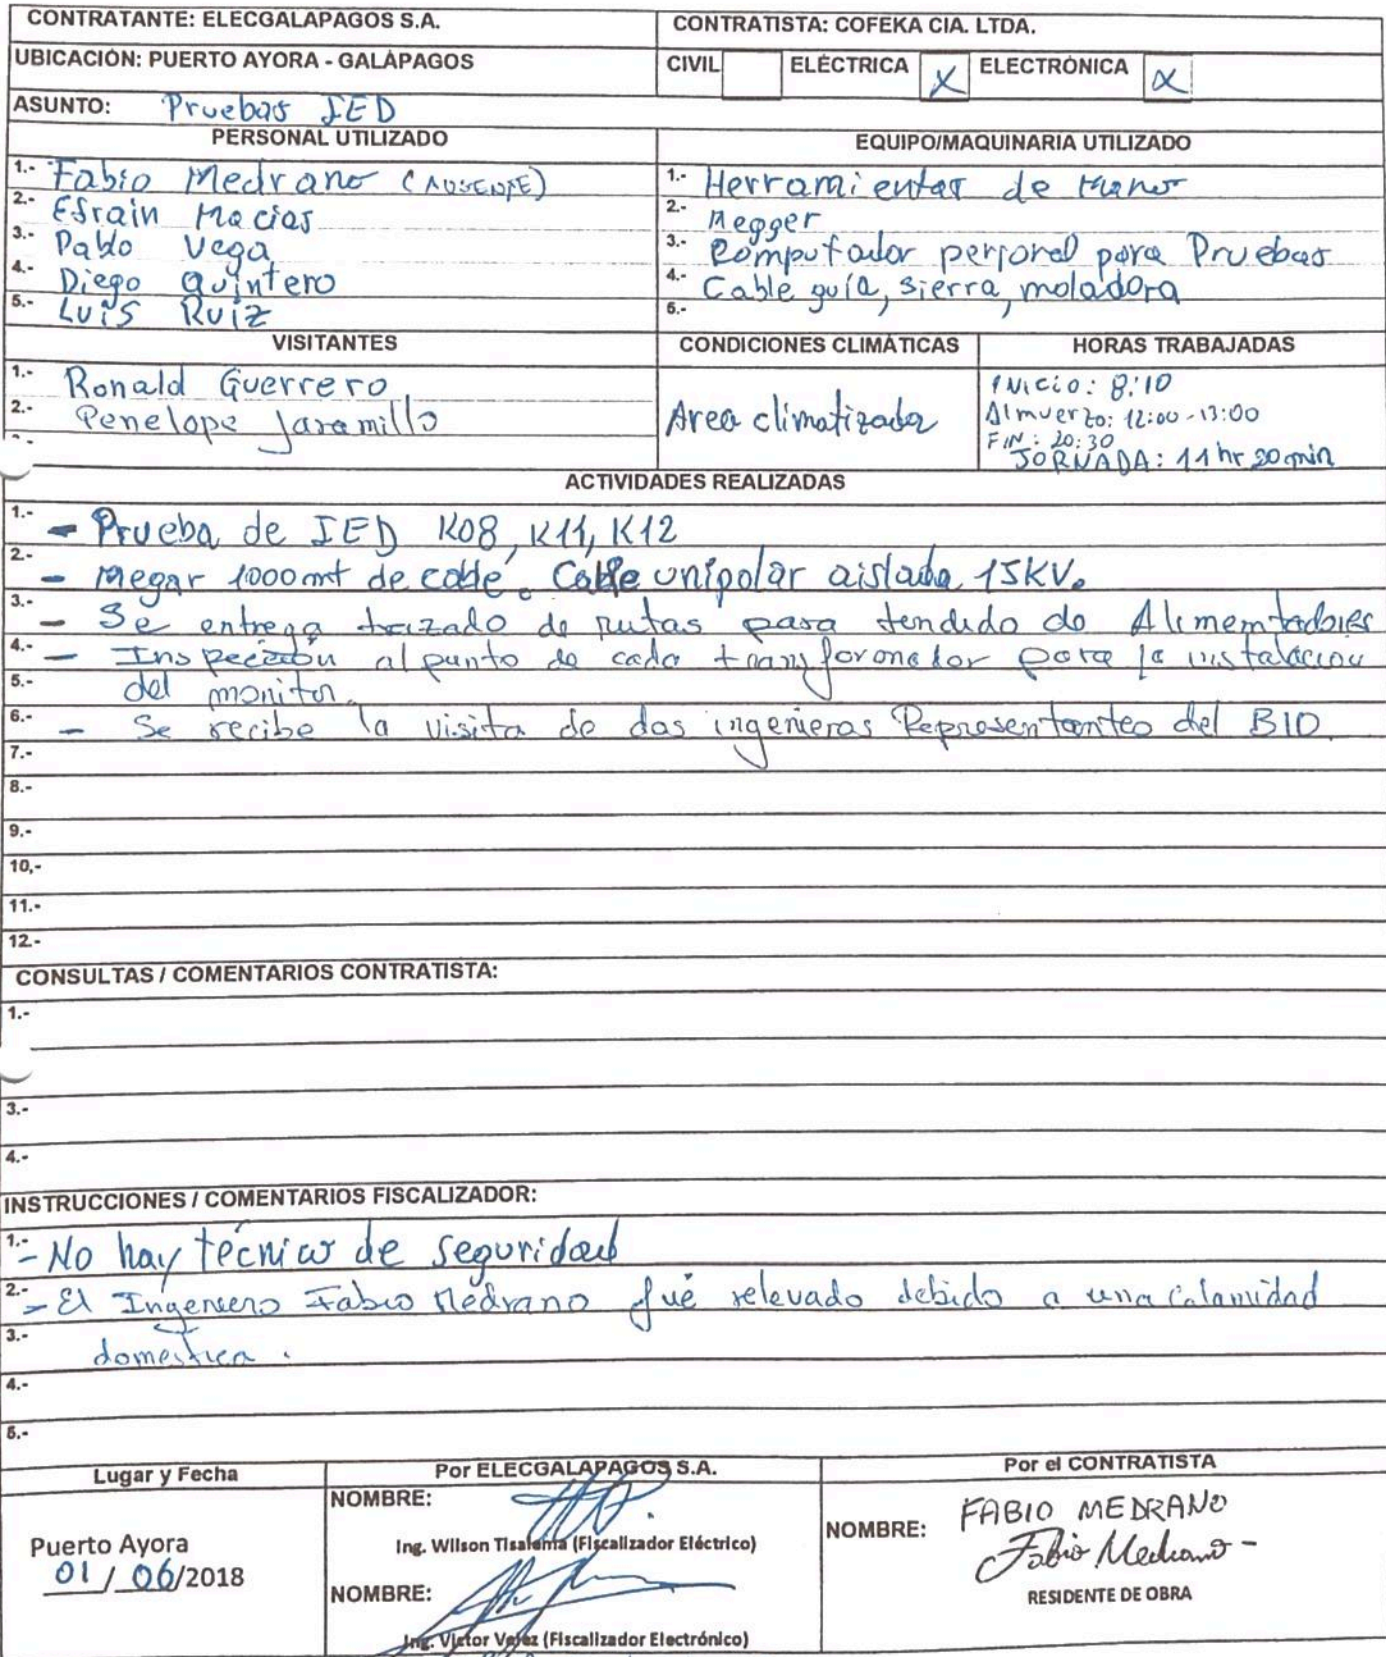 CONTRATANTE: ELECGALAPAGOS S.A.
CONTRATISTA: COFEKA CIA. LTDA.
UBICACIÓN: PUERTO AYORA - GALÁPAGOS
CIVIL ELÉCTRICA X ELECTRÓNICA X
ASUNTO: Pruebas IED
PERSONAL UTILIZADO
1.- Fabio Medrano (AUSENTE)
2.- Efrain Macias
3.- Pablo Vega
4.- Diego Quintero
5.- Luis Ruiz
EQUIPO/MAQUINARIA UTILIZADO
1.- Herramientas de mano
2.- Megger
3.- Computador personal para Pruebas
4.- Cable guía, sierra, moladora
5.-
VISITANTES
1.- Ronald Guerrero
2.- Penelope Jaramillo
CONDICIONES CLIMÁTICAS
Area climatizada
HORAS TRABAJADAS
INICIO: 8:10
Almuerzo: 12:00-13:00
FIN: 20:30
JORNADA: 11 hr 20 min
ACTIVIDADES REALIZADAS
1.- - Prueba de IED K08, K11, K12
2.- - Megar 1000 mt de cable. Cable unipolar aislado 15KV.
3.- - Se entrega trazado de rutas para tendido de Alimentadores
4.- - Inspección al punto de cada transformador para la instalacion
5.- del monitor.
6.- - Se recibe la visita de dos ingenieros Representantes del BID.
7.-
8.-
9.-
10,-
11.-
12.-
CONSULTAS / COMENTARIOS CONTRATISTA:
1.-
3.-
4.-
INSTRUCCIONES / COMENTARIOS FISCALIZADOR:
1.- - No hay técnico de seguridad
2.- - El Ingeniero Fabio Medrano fué relevado debido a una calamidad
3.- domestica.
4.-
5.-
Lugar y Fecha
Puerto Ayora
01 / 06/2018
Por ELECGALAPAGOS S.A.
NOMBRE:
Ing. Wilson Tisalema (Fiscalizador Eléctrico)
NOMBRE:
Ing. Victor Velez (Fiscalizador Electrónico)
Por el CONTRATISTA
NOMBRE: FABIO MEDRANO
Fabio Medrano -
RESIDENTE DE OBRA